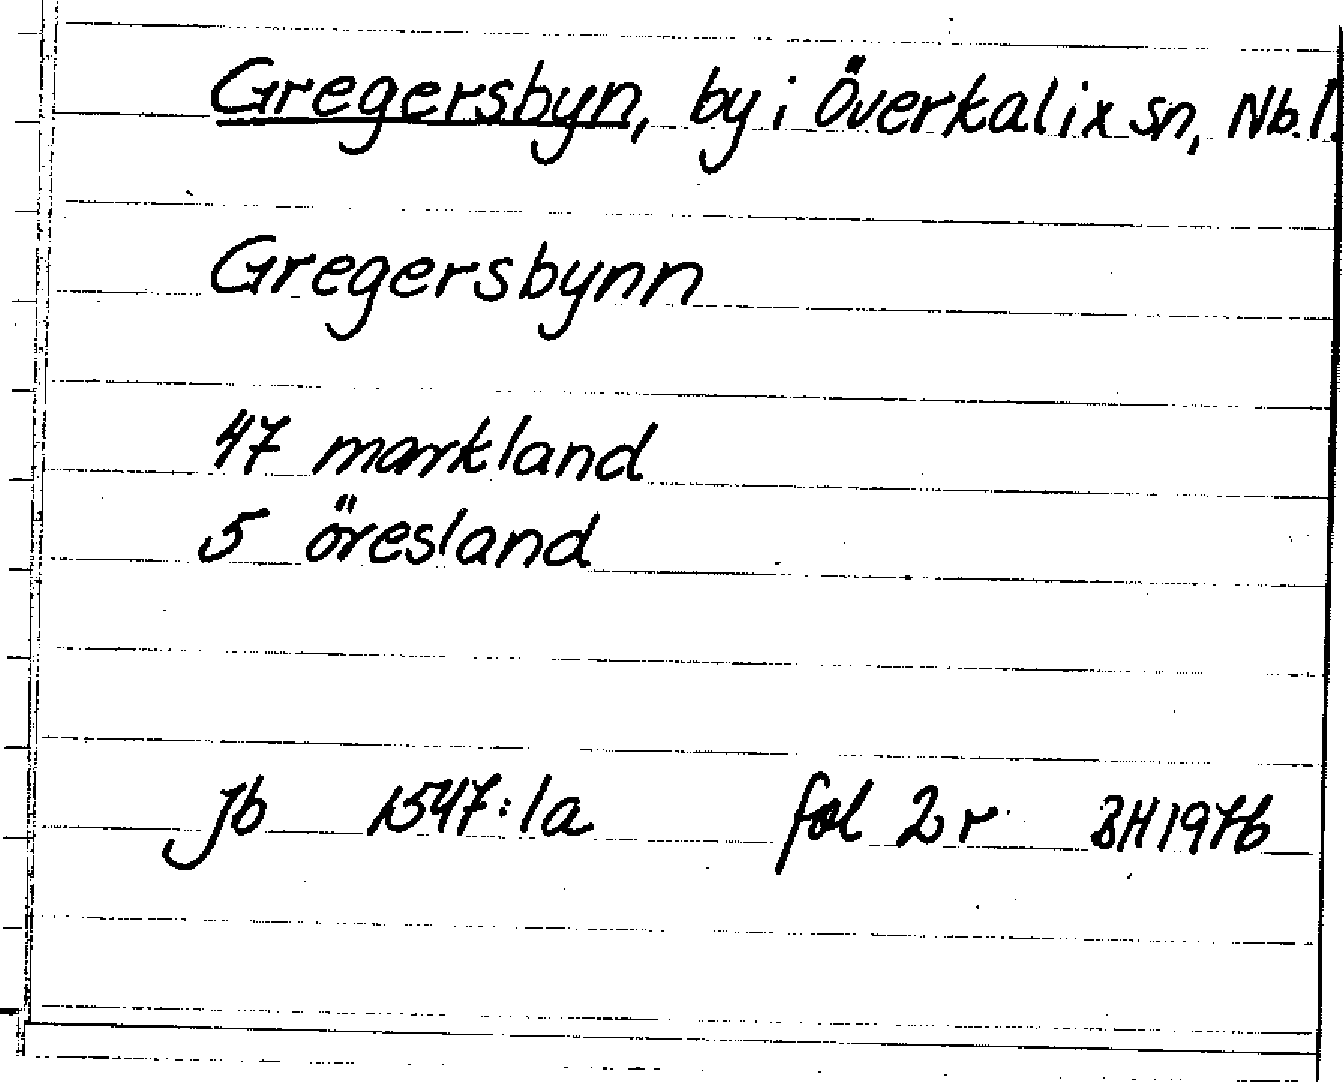 Gregersbyn, by i Överkalix sn, Nb.l.
Gregersbynn
47 markland
5 öresland
jb 1547:1a fol 2r BH 1976